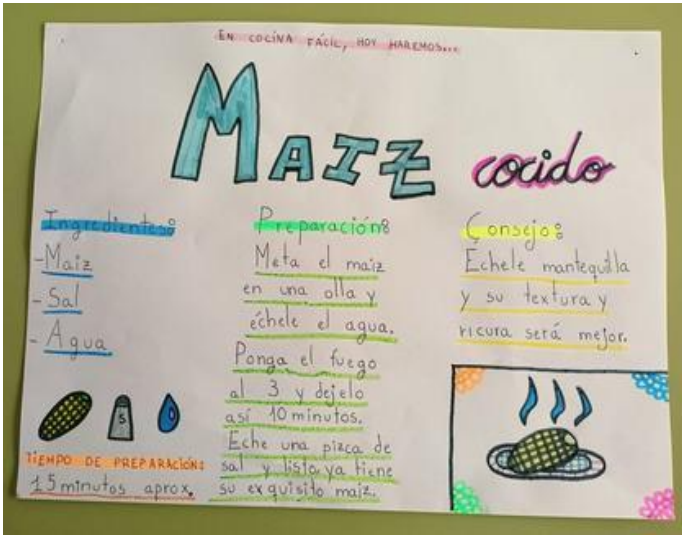 EN COCINA FÁCIL, HOY HAREMOS...
MAIZ cocido
Ingredientes:
-Maiz
-Sal
-Agua
S
TIEMPO DE PREPARACIÓN:
15 minutos aprox.
Preparación:
Meta el maiz
en una olla y
échele el agua.
Ponga el fuego
al 3 y dejelo
así 10 minutos.
Eche una pizca de
sal y listo, ya tiene
su exquisito maiz.
Consejo:
Échele mantequilla
y su textura y
ricura será mejor.